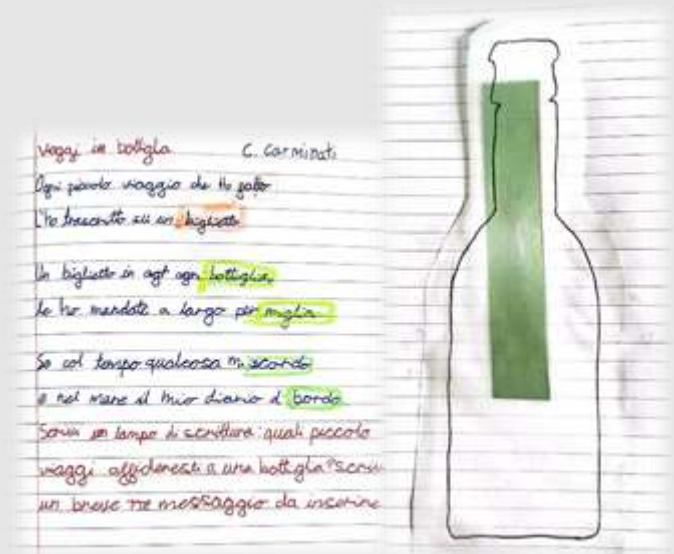 viaggi in bottiglia C. Carminati
Ogni piccolo viaggio che ho fatto
L'ho trascritto su un biglietto
Un biglietto in ogni bottiglia,
le ho mandate a largo per miglia
Se col tempo qualcosa mi scordo
è nel mare il mio diario di bordo.
un tempo di scrittura: quali piccolo
viaggi affideresti a una bottiglia? scrivi
un breve messaggio da inserire